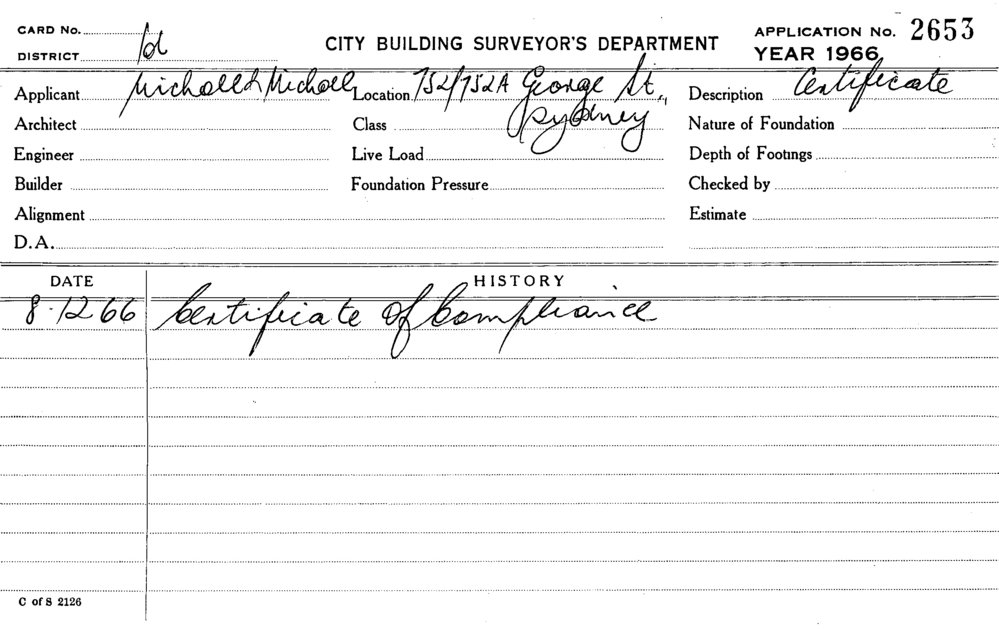 CARD No.
DISTRICT
CITY BUILDING SURVEYOR'S DEPARTMENT
APPLICATION No. 2653
YEAR 1966
Applicant Nicholl & Nicholl Location 752/752A George St., Description Certificate
Architect Class Sydney Nature of Foundation
Engineer Live Load Depth of Footings
Builder Foundation Pressure Checked by
Alignment Estimate
D.A.
DATE HISTORY
8.12.66 Certificate of Compliance
C of S 2126